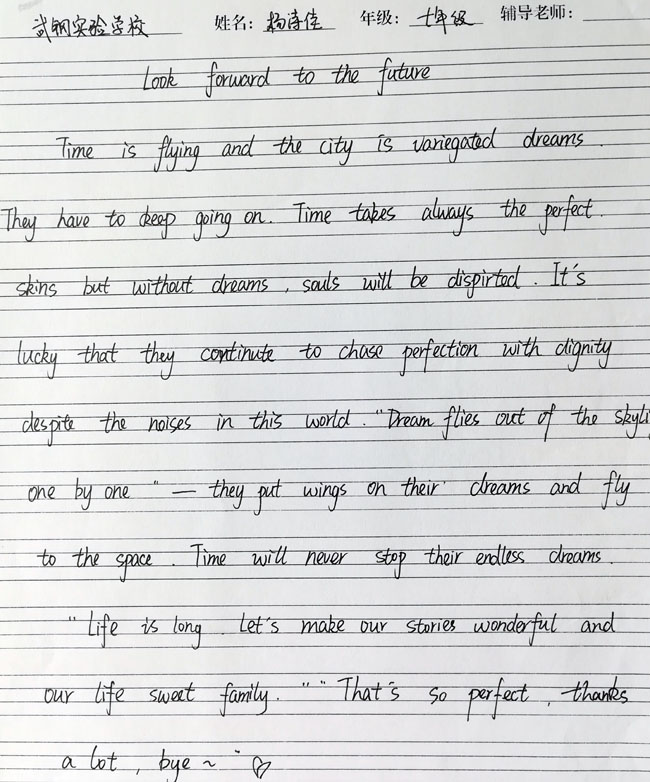 武钢实验学校 姓名: 杨诗佳 年级: 七年级 辅导老师:
Look forward to the future
Time is flying and the city is variegated dreams.
They have to keep going on. Time takes always the perfect
skins but without dreams, souls will be dispirted. It's
lucky that they continute to chase perfection with dignity
despite the noises in this world. "Dream flies out of the skyli
one by one" — they put wings on their dreams and fly
to the space. Time will never stop their endless dreams.
"Life is long. Let's make our stories wonderful and
our life sweet family." "That's so perfect, thanks
a lot, bye~"♡